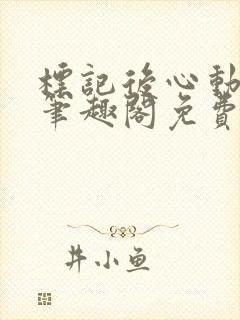 標記後心動
筆趣閣免費
井小魚